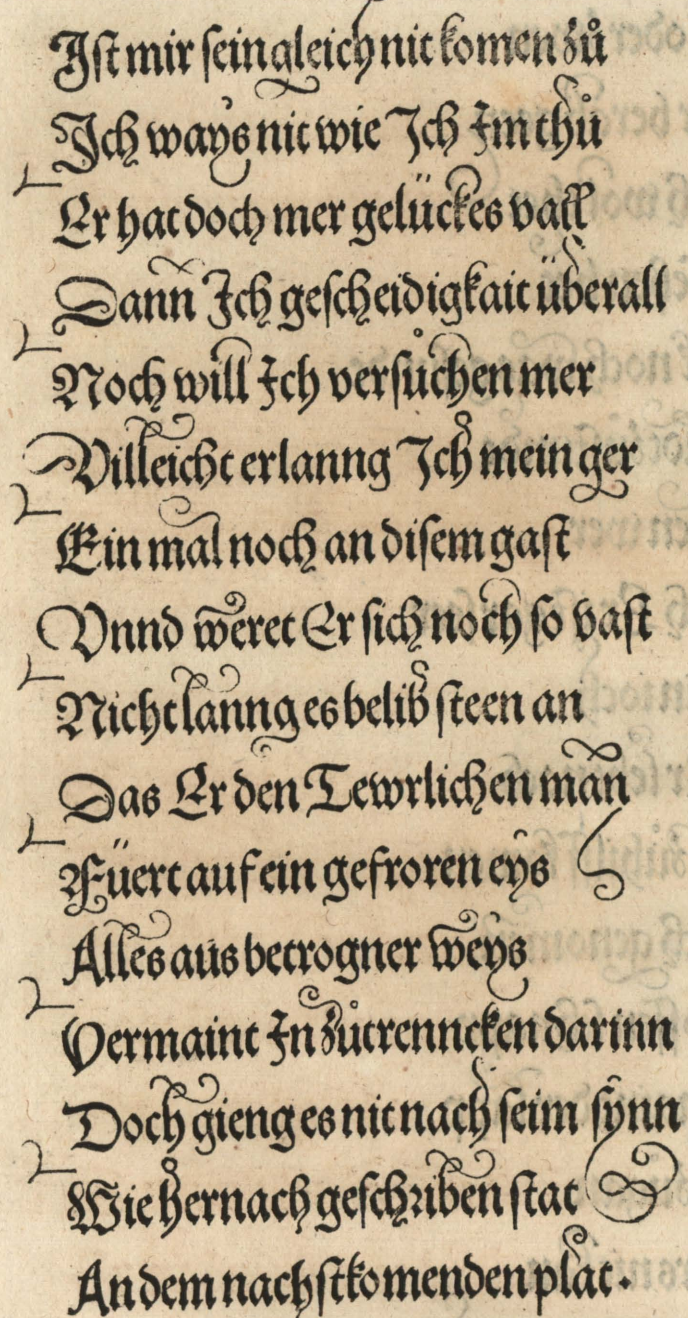 Ist mir sein gleich nit komen zů
Ich ways nit wie Ich Im thů
Er hat doch mer gelückes vall
Dann Ich gescheidigkait überall
Noch will Ich versůchen mer
Villeicht erlanng Ich mein ger
Ein mal noch an disem gast
Vnnd weret Er sich noch so vast
Nicht lanng es belib steen an
Das Er den Tewrlichen man
Füert auf ein gefroren eys
Alles aus betrogner weys
Vermaint In zůtrenncken darinn
Doch gieng es nit nach seim synn
Wie hernach geschriben stat
An dem nachstkomenden plat.